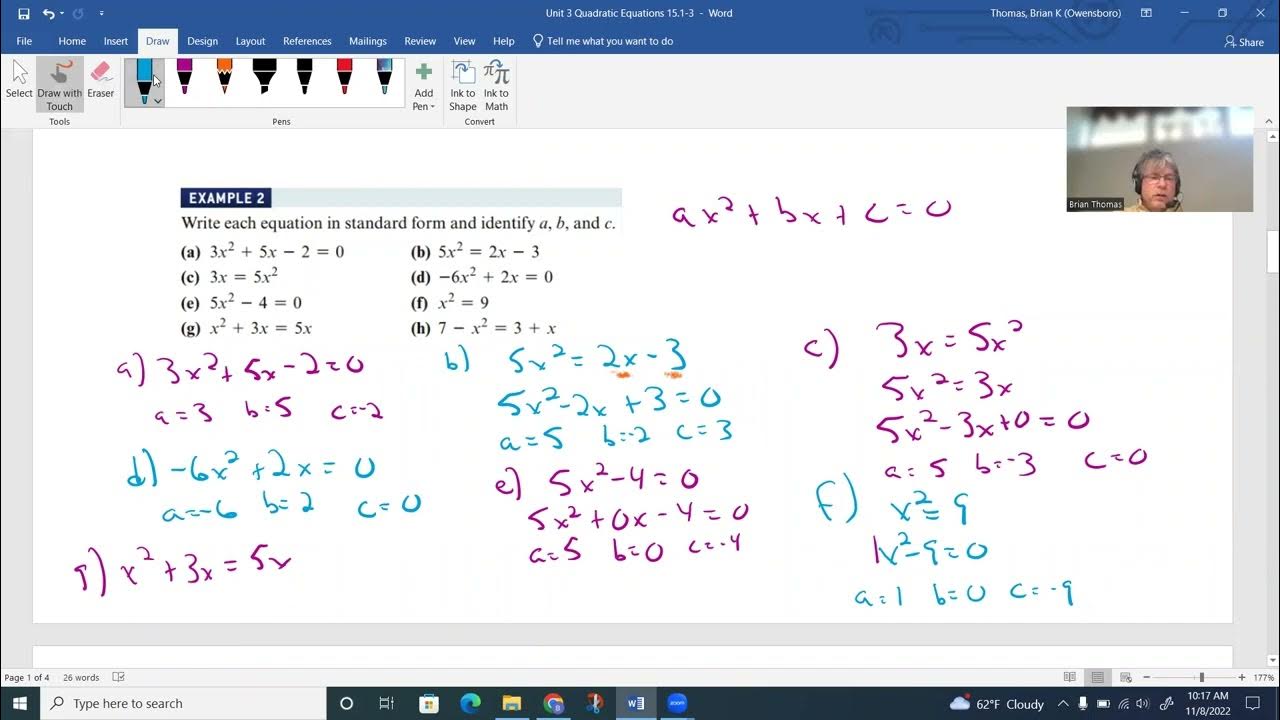 Unit 3 Quadratic Equations 15.1-3 - Word
Thomas, Brian K (Owensboro)
File Home Insert Draw Design Layout References Mailings Review View Help Tell me what you want to do
Share
Select
Draw with Touch
Eraser
Add Pen
Ink to Shape
Ink to Math
Tools
Pens
Convert
Brian Thomas
EXAMPLE 2
Write each equation in standard form and identify a, b, and c.
(a) 3x² + 5x − 2 = 0
(b) 5x² = 2x − 3
(c) 3x = 5x²
(d) −6x² + 2x = 0
(e) 5x² − 4 = 0
(f) x² = 9
(g) x² + 3x = 5x
(h) 7 − x² = 3 + x
ax² + bx + c = 0
a) 3x² + 5x − 2 = 0
a = 3 b = 5 c = −2
b) 5x² = 2x − 3
5x² − 2x + 3 = 0
a = 5 b = −2 c = 3
c) 3x = 5x²
5x² = 3x
5x² − 3x + 0 = 0
a = 5 b = −3 c = 0
d) −6x² + 2x = 0
a = −6 b = 2 c = 0
e) 5x² − 4 = 0
5x² + 0x − 4 = 0
a = 5 b = 0 c = −4
f) x² = 9
1x² − 9 = 0
a = 1 b = 0 c = −9
g) x² + 3x = 5x
Page 1 of 4 26 words
177%
Type here to search
62°F Cloudy
10:17 AM
11/8/2022